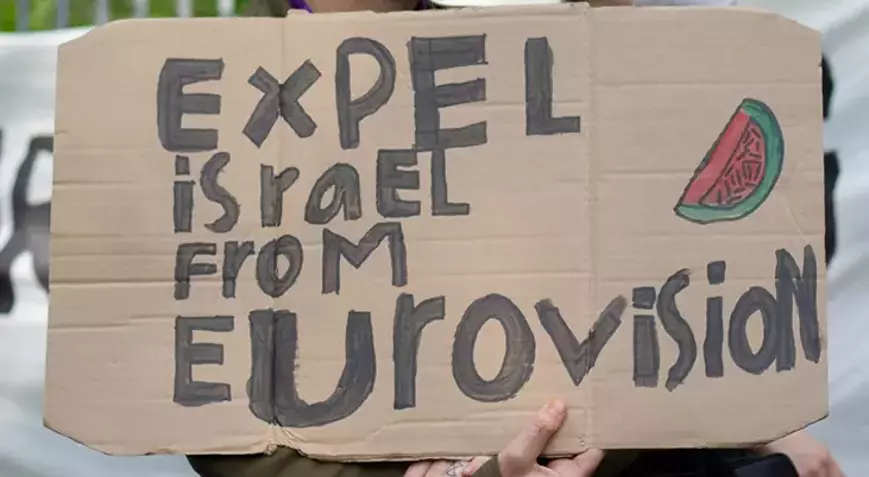 EXPEL
isrаEL
FROM
EUrovision